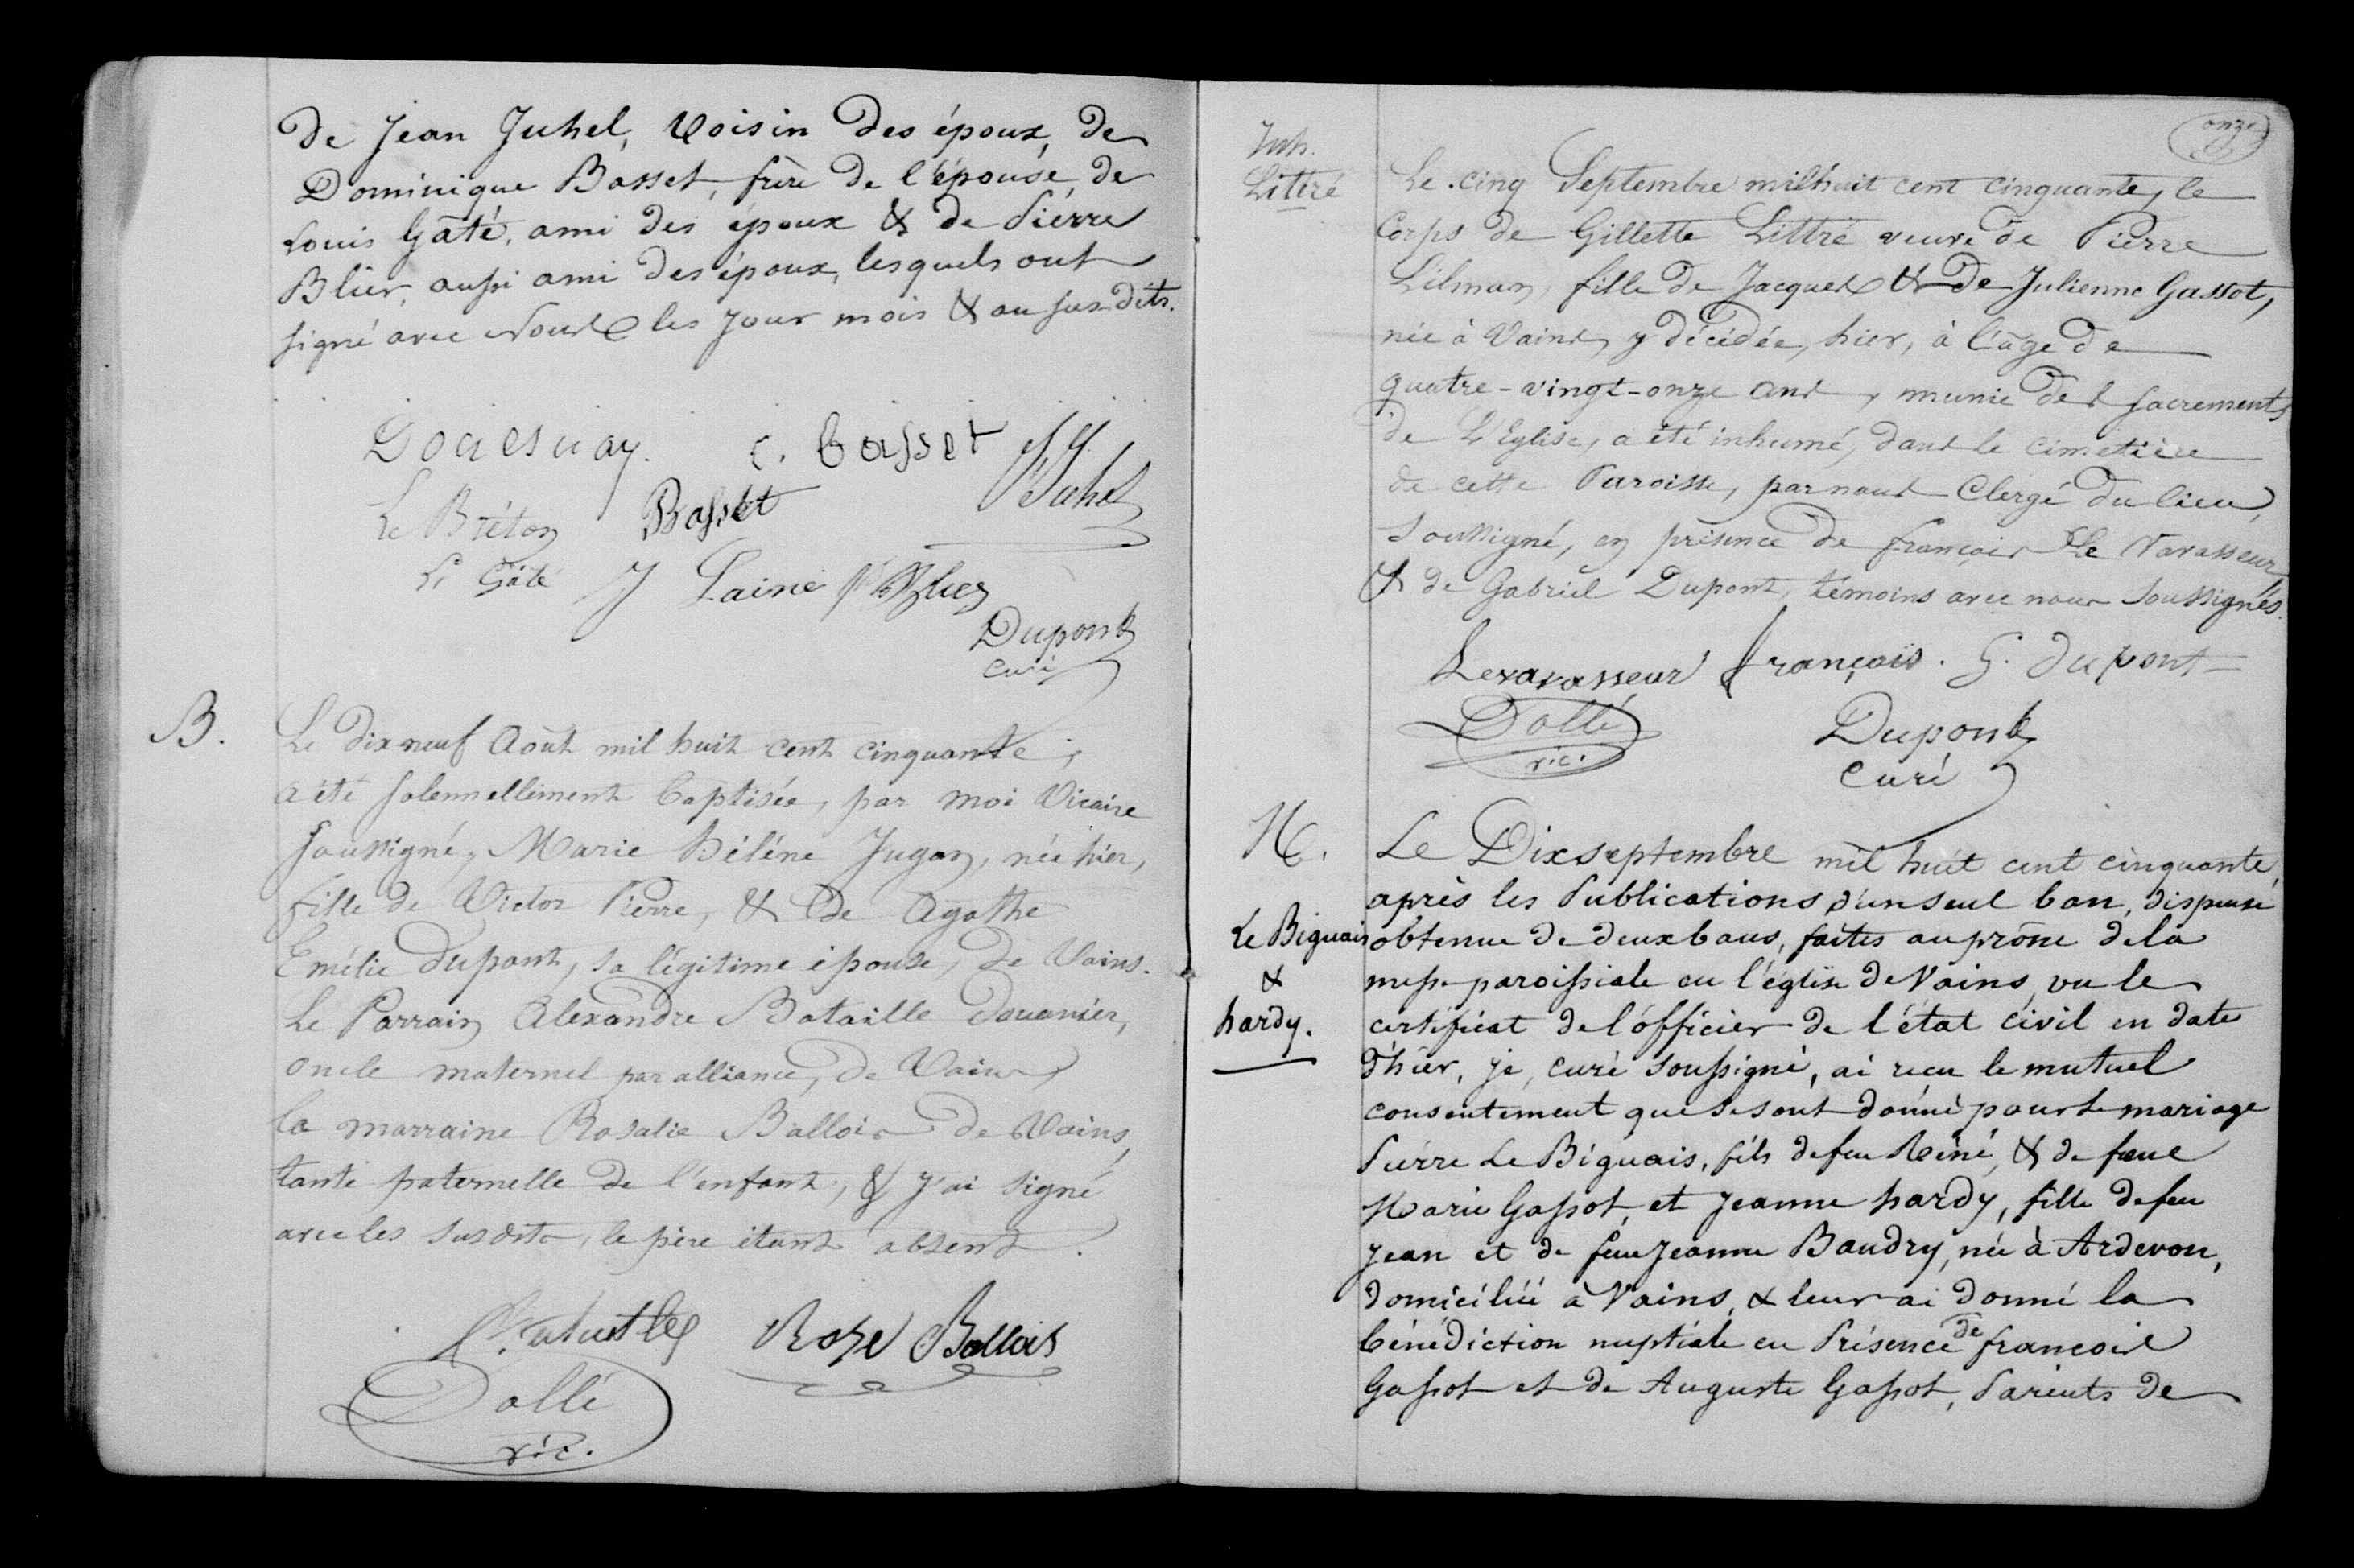 de Jean Juhel, voisin des époux, de
Dominique Basset, frère de l'épouse, de
Louis Gâté, ami des époux & de Pierre
Blier, aussi ami des époux, lesquels ont
signé avec Nous les jour mois & an susdits.
C. Basset
J. Juhel
Le Bréton Basset
L. Gâté J Lainé
Dupont
curé
B.
Le dix neuf Août mil huit cent cinquante,
a été solennellement baptisée, par moi Vicaire
soussigné, Marie Héléne Jugan, née hier,
fille de Victor Pierre, & de Agathe
Emélie Dupont, sa légitime épouse, de Vains.
Le Parrain Alexandre Bataille Douanier,
oncle maternel par alliance, de Vains
la marraine Rosalie Ballois de Vains,
tante paternelle de l'enfant, & j'ai signé
avec les susdits, le père étant absent.
Roze Ballois
Dollé
vic.
onze
Inh.
Littré
Le cinq Septembre mil huit cent cinquante, le
Corps de Gillette Littré veuve de Pierre
Lilman, fille de Jacques & de Julienne Gassot,
née à Vains, y décédée, hier, à l'âge de
quatre-vingt-onze ans, munie des sacrements
de L'Eglise, a été inhumé, dans le cimetière
de cette Paroisse, par nous Clergé du lieu,
soussigné, en présence de françois Le Vavasseur
& de Gabriel Dupont, témoins avec nous soussignés.
Levavasseur françois. G. dupont
Dollé
vic.
Dupont
Curé
M.
Le Biguais
&
hardy.
Le Dix septembre mil huit cent cinquante,
après les Publications d'un seul ban, dispense
obtenue de deux bans, faites au prône de la
messe paroissiale en l'église de Vains, vu le
certificat de l'officier de l'état civil en date
d'hier, je, curé soussigné, ai reçu le mutuel
consentement que se sont donné pour le mariage
Pierre Le Biguais, fils de feu Réné, & de feue
Marie Gassot, et Jeanne hardy, fille de feu
Jean et de feue Jeanne Baudry, née à Ardevon,
domiciliée à Vains, & leur ai donné la
bénédiction nuptiale en Présence de françois
Gassot et de Auguste Gassot, Parents de